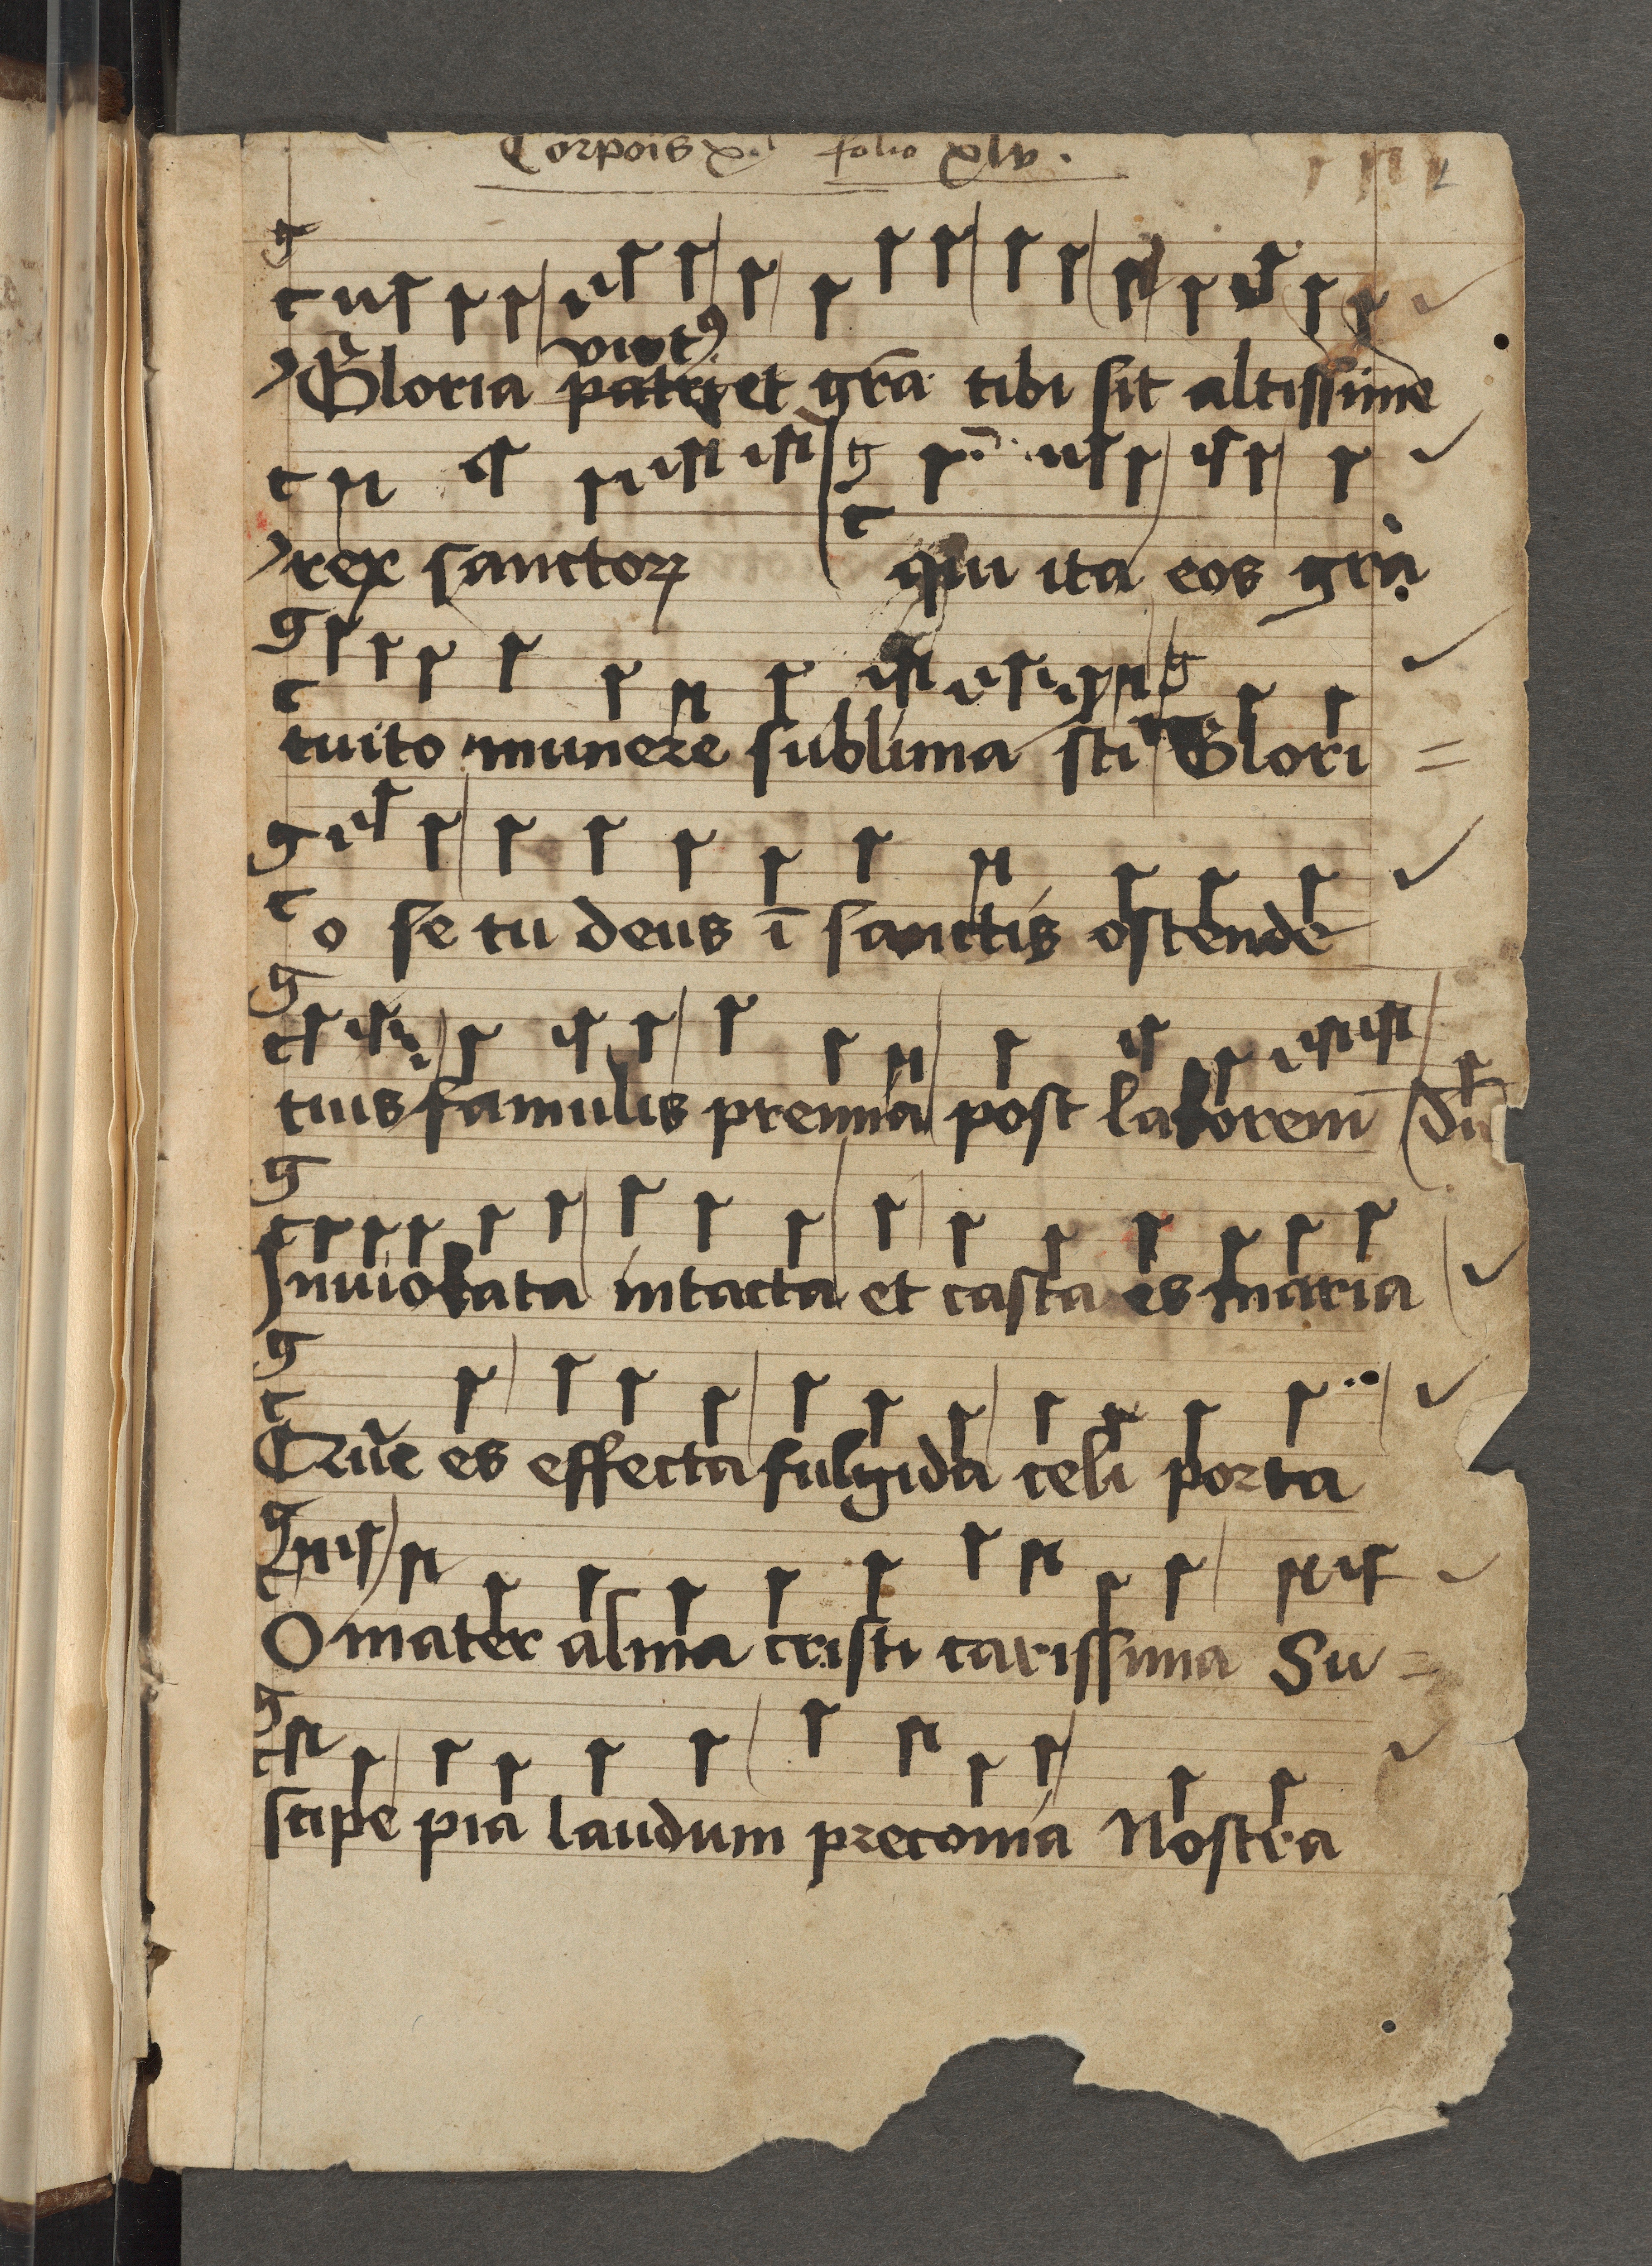 Corporis xi folio xlv.
virt9
Gloria patri et grā tibi sit altissime
rex sanctoꝝ qui ita eos gra
tuito munere sublima sti Glori =
o se tu deus ī sanctis ostende
tuis famulis premia post laborem
Inviolata intacta et casta es maria
Que es effecta fulgida celi porta
O mater alma cristi carissima Su =
scipe pia laudum preconia Nostra